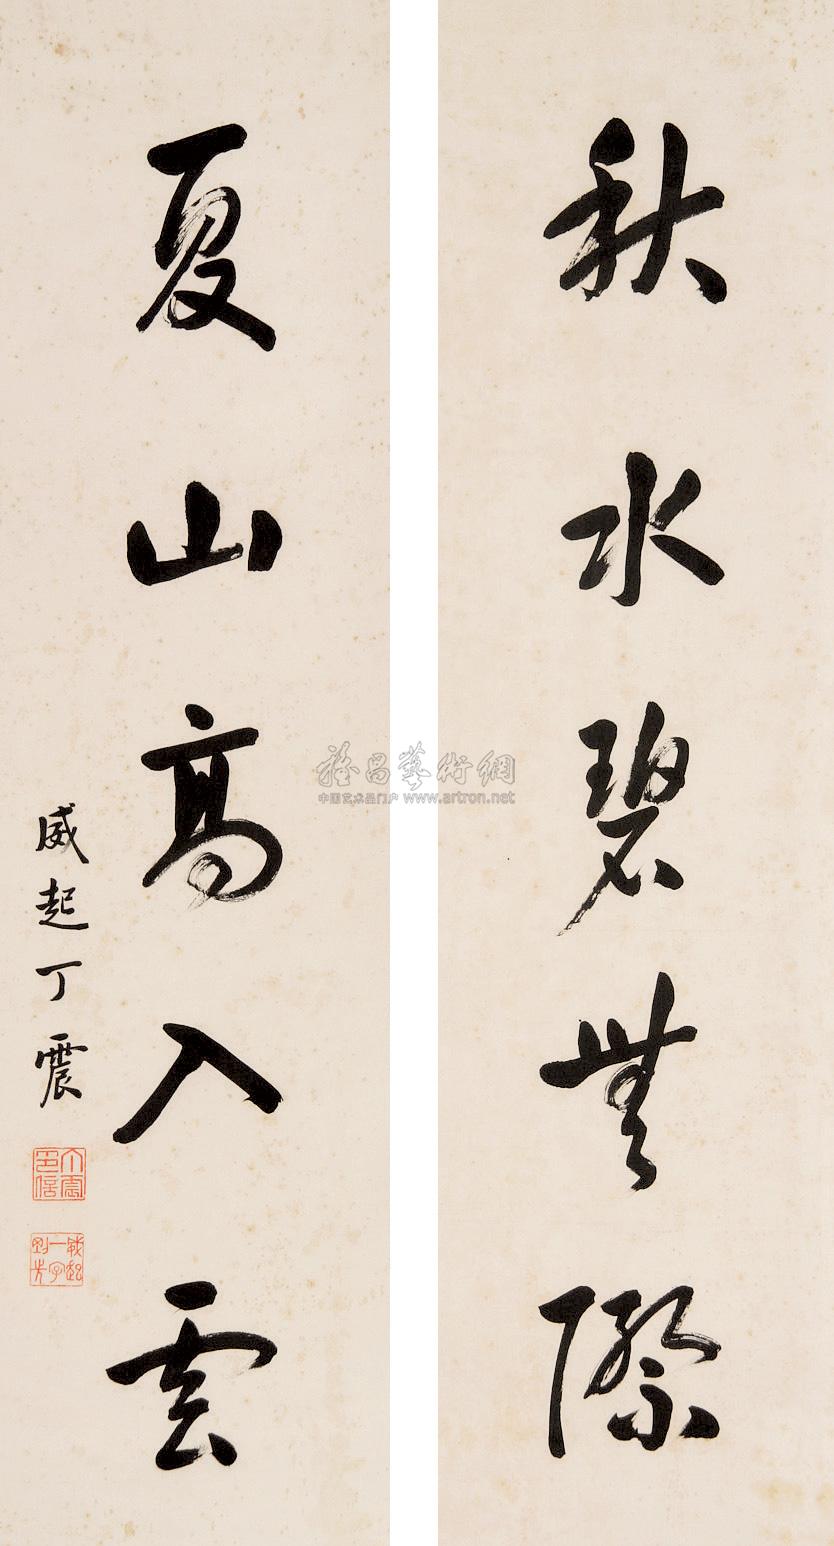 秋水碧無際
夏山高入雲
威起丁震
丁震印信
雅昌藝術網
中国艺术品门户 www.artron.net